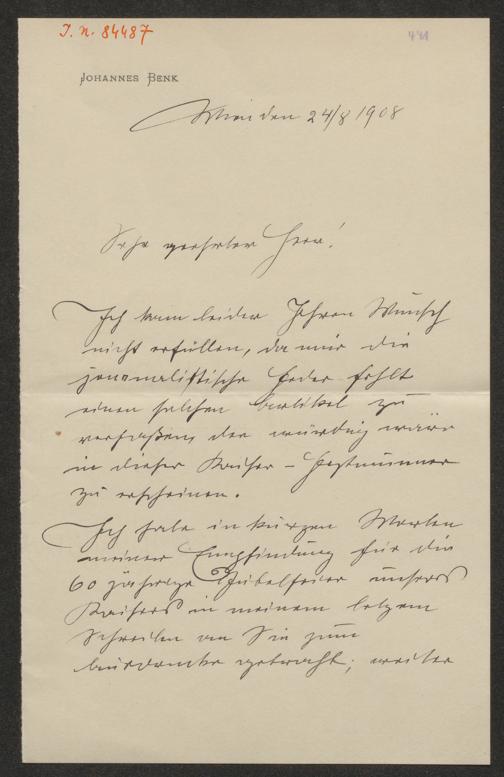 J. N. 84487
441
JOHANNES BENK
Wien den 24/8 1908
Sehr geehrter Herr!
Ich kann leider Ihren Wunsch
nicht erfüllen, da mir die
journalistische Feder fehlt
einen solchen Artikel zu
verfaßen, der würdig wäre
in dieser Kaiser-Festnummer
zu erscheinen.
Ich habe in kurzen Worten
meiner Empfindung für die
60 jährige Jubelfeier unsers
Kaisers in meinem letzem
Schreiben an Sie zum
Ausdrucke gebracht; weiter